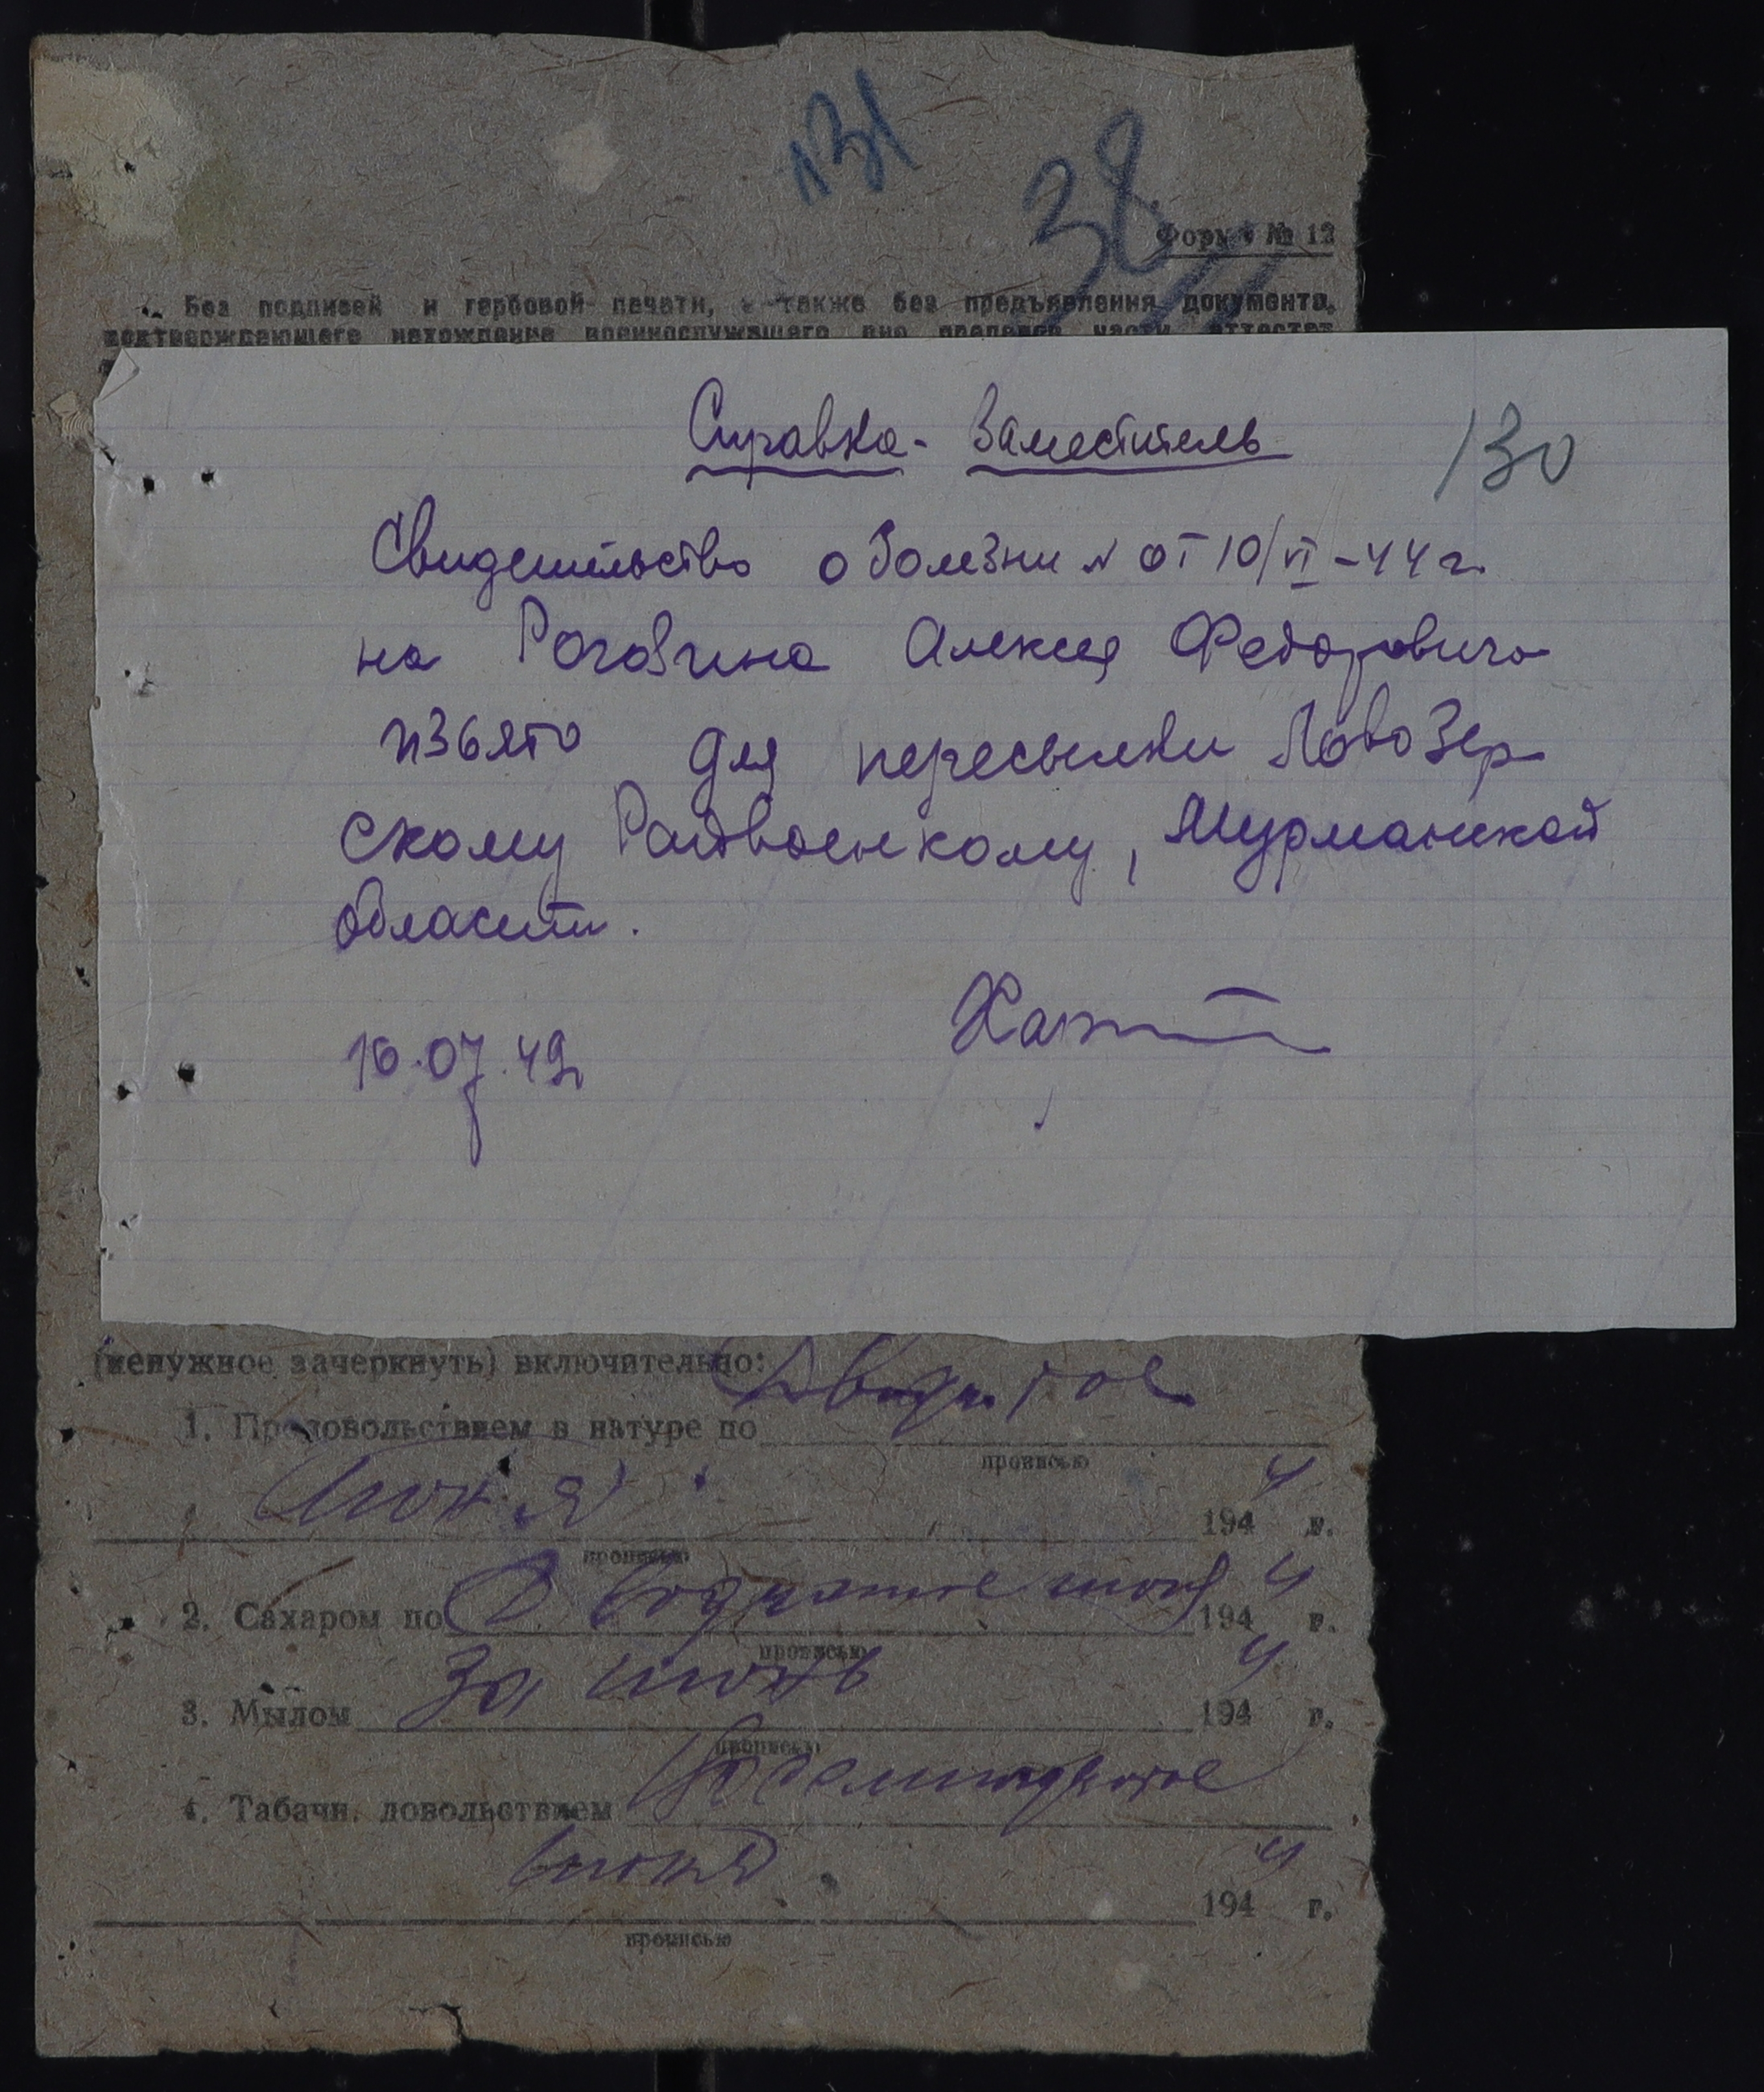 131
38
Форма № 12
Без подписей и гербовой печати, а также без предъявления документа,
подтверждающего нахождение военнослужащего вне пределов части, аттестат
Справка - Заместитель
130
Свидетельство о болезни № от 10/VI-44 г.
на Рогозина Алексея Федоровича
изъято для пересылки Ловозер
скому Райвоенкому, Мурманской
области.
16.07.49
(ненужное зачеркнуть) включительно:
1. Продовольствием в натуре по Двадцатое
прописью
Июня 1944 г.
прописью
2. Сахаром по Двадцатое июня 1944 г.
прописью
3. Мылом За июнь 1944 г.
прописью
4. Табачн. довольствием
июня 1944 г.
прописью